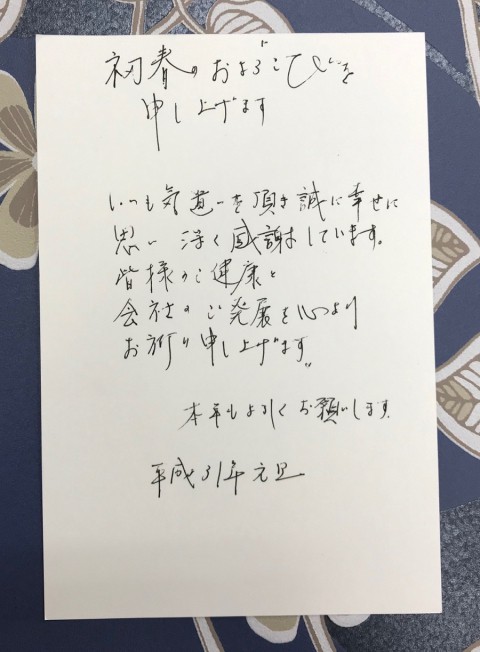 初春のおよろこびを
申し上げます
いつも気遣いを頂き誠に幸せに
思い 深く感謝しています。
皆様のご健康と
会社のご発展を心より
お祈り申し上げます
本年もよろしくお願いします
平成31年 元旦